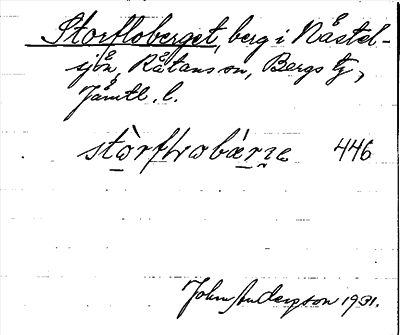 Storfloberget, berg i Nåstel-
sjön, Råtans sn, Bergs tg,
Jämtl. l.
stòrfɫωbàrɳe 446
John Anderson 1931.